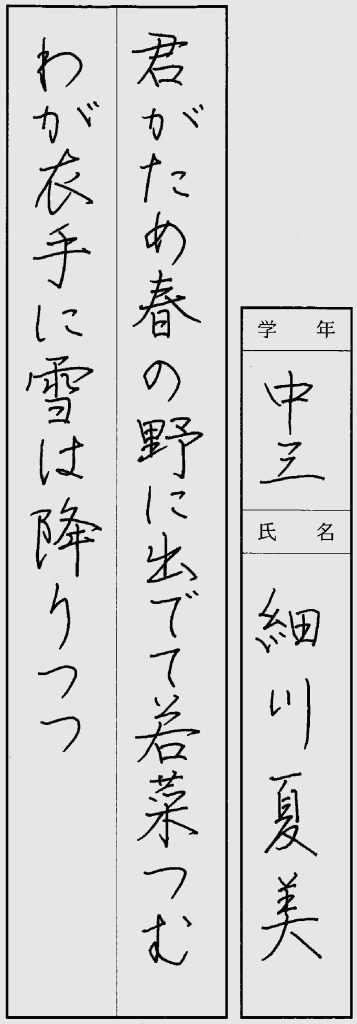 学年
中三
氏名
細川夏美
君がため春の野に出でて若菜つむ
わが衣手に雪は降りつつ